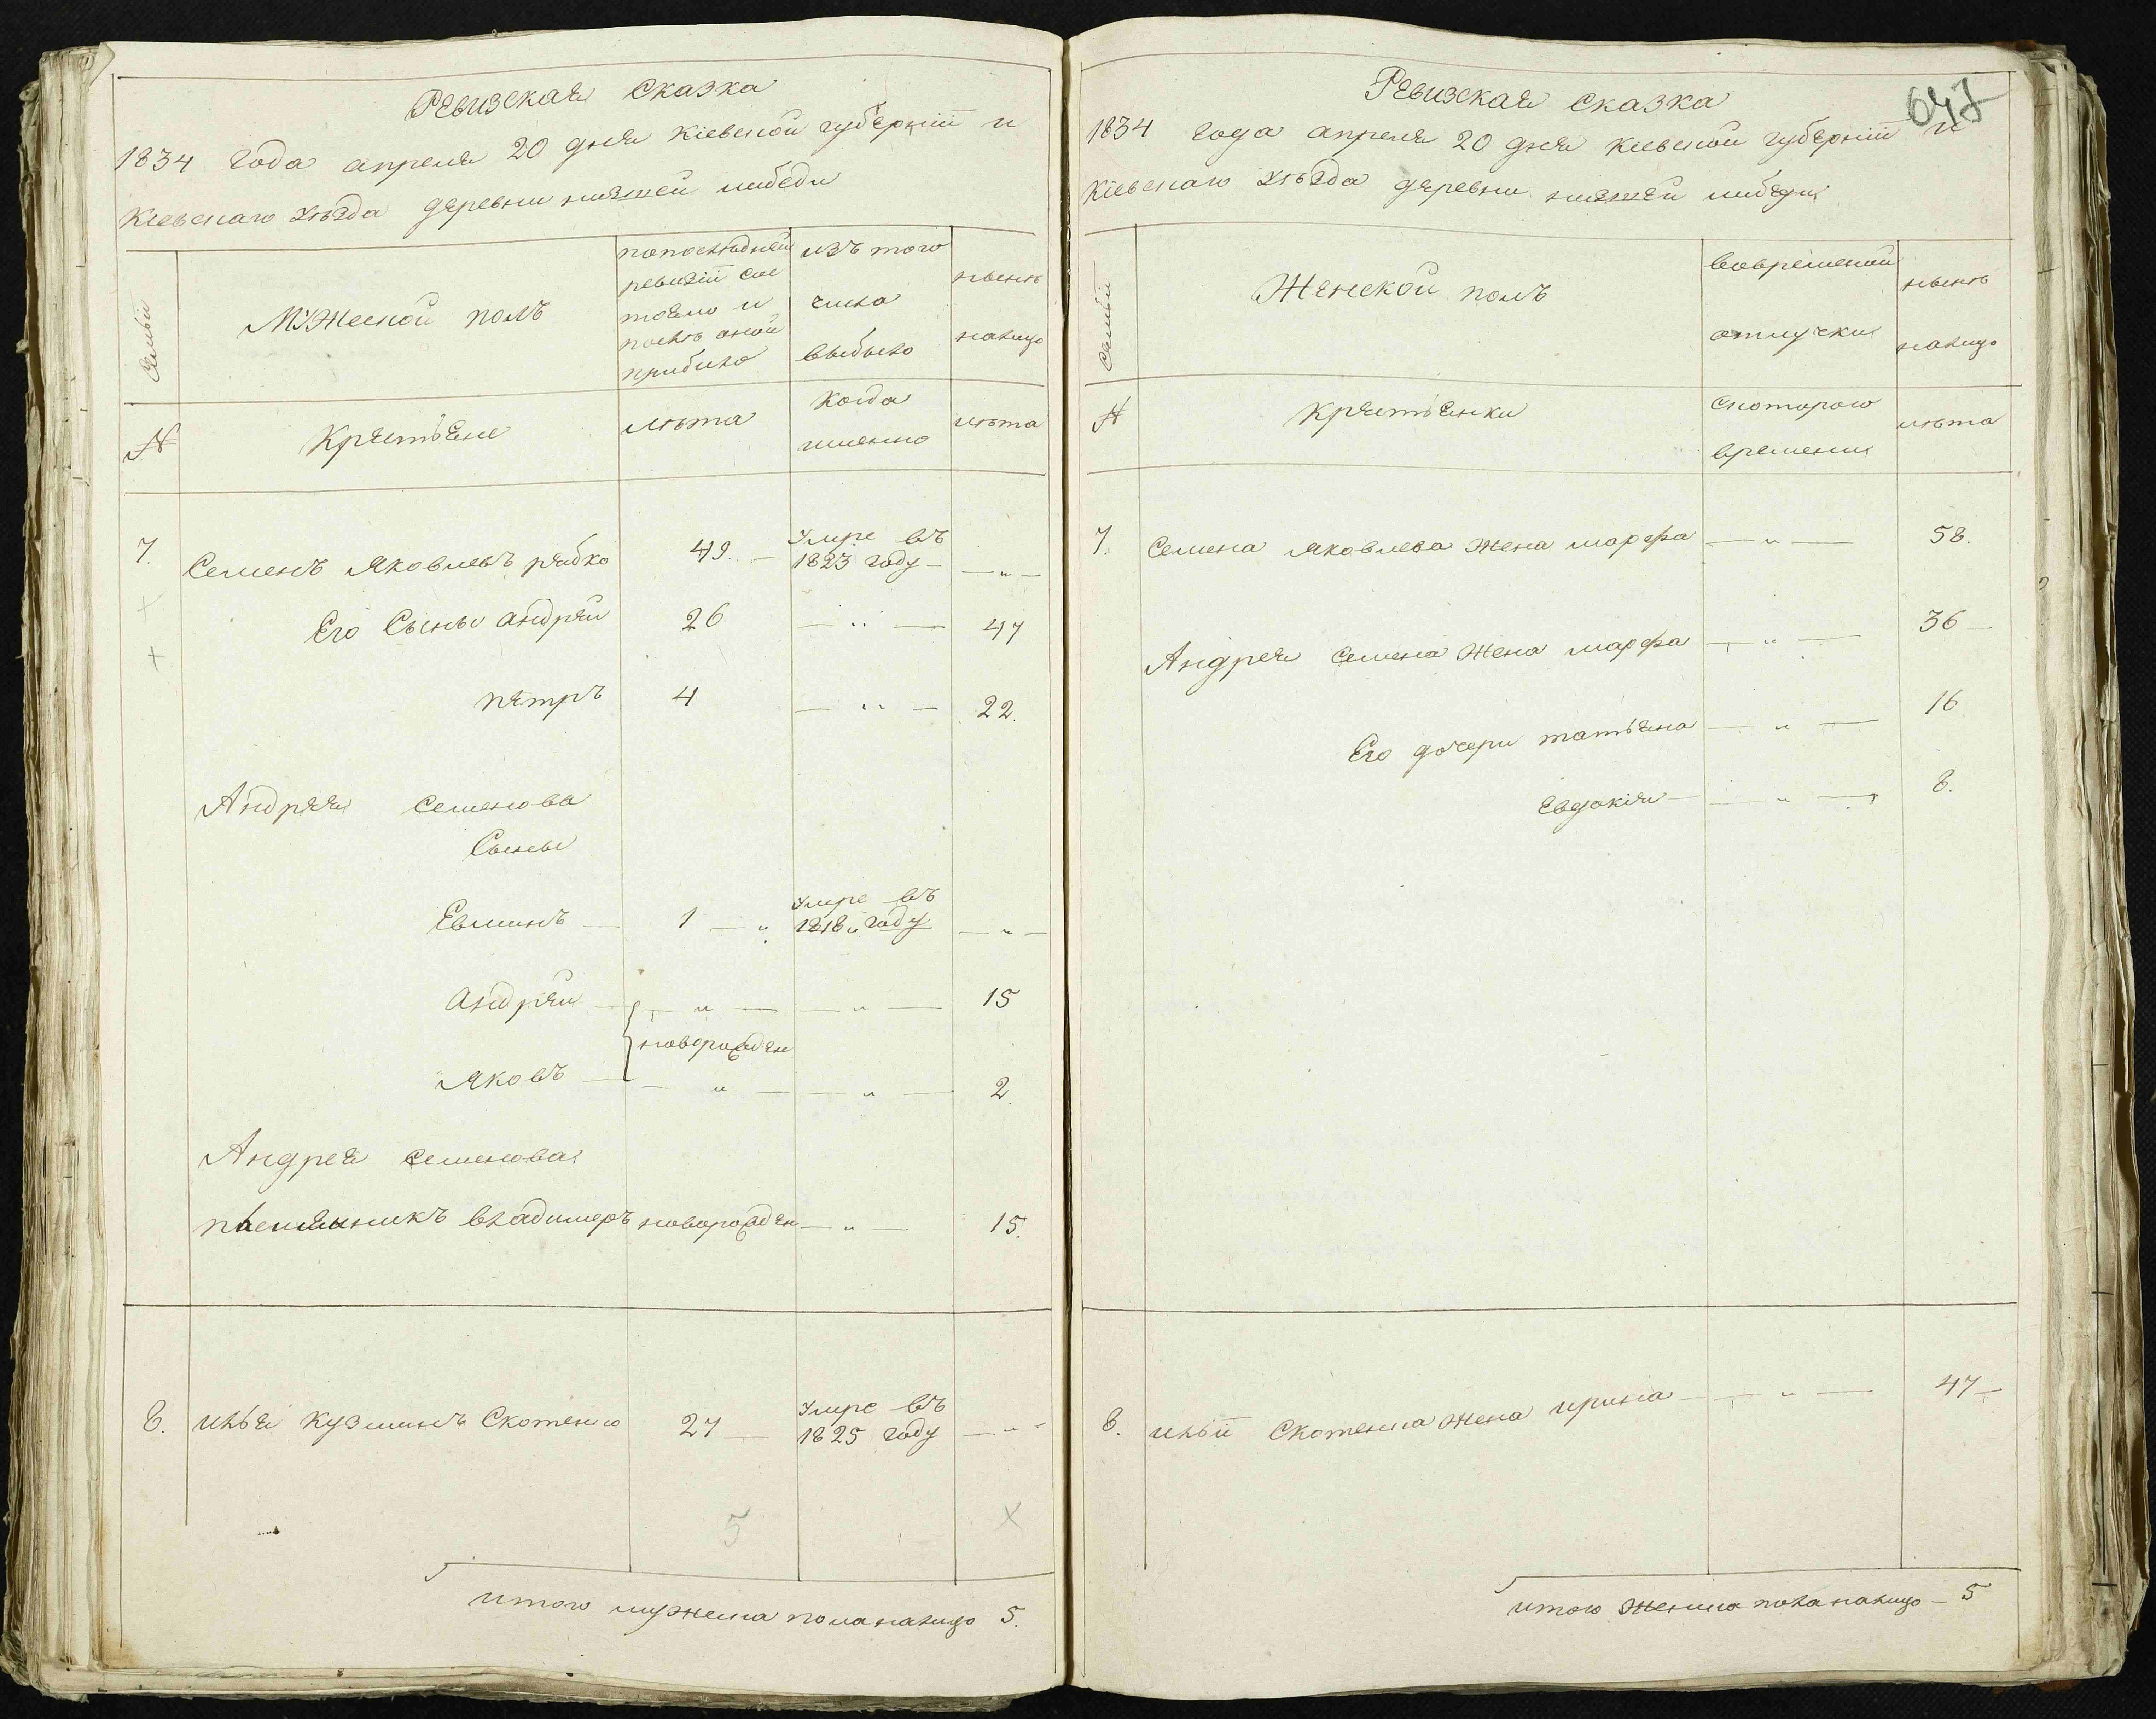 Ревизская Сказка
1834 года апреля 20 дня Кіевской губерніи и
Кіевскаго Уѣзда деревни нижней либеди
Семьи
Мужеской полъ
попослѣдней ревизіи сос тояло и послѣ оной прибыло
изъ того числа выбыло
нынѣ налицо
№
Крестьяне
лѣта
Когда именно
лѣта
7. Семенъ Яковлевъ рябко 49. — Умре въ 1823 году — — „ —
Его Сыны андрей 26 — „ — 47
петръ 4 — „ — 22.
Андрея Семенова
Сыны
Евминъ — 1 — „ Умре въ 1818 году — „ —
андрей — „ — — „ — 15
новорожден
Яковъ — — „ — — „ — 2.
Андрея Семенова
племяникъ владимеръ новорожден — „ — 15.
8. илья Кузминъ Скотенко 27 — Умре въ 1825 году — „ —
5 х
итого мужеска пола налицо 5.
647
Ревизская Сказка
1834 года апреля 20 дня Кіевской губерніи и
Кіевскаго Уѣзда деревни нижней либеди
Семьи
Женской полъ
вовременной отлучки
нынѣ налицо
№
Крестьянки
скоторого времени
лѣта
7. Семена Яковлева Жена марфа — „ — 58.
Андрея Семена Жена марфа — „ — 36 —
Его дочери татьяна — „ — 16
Евдокія — — „ — 8.
8. ильи Скотенка жена ирина — — „ — 47 —
итого Женска пола налицо — 5